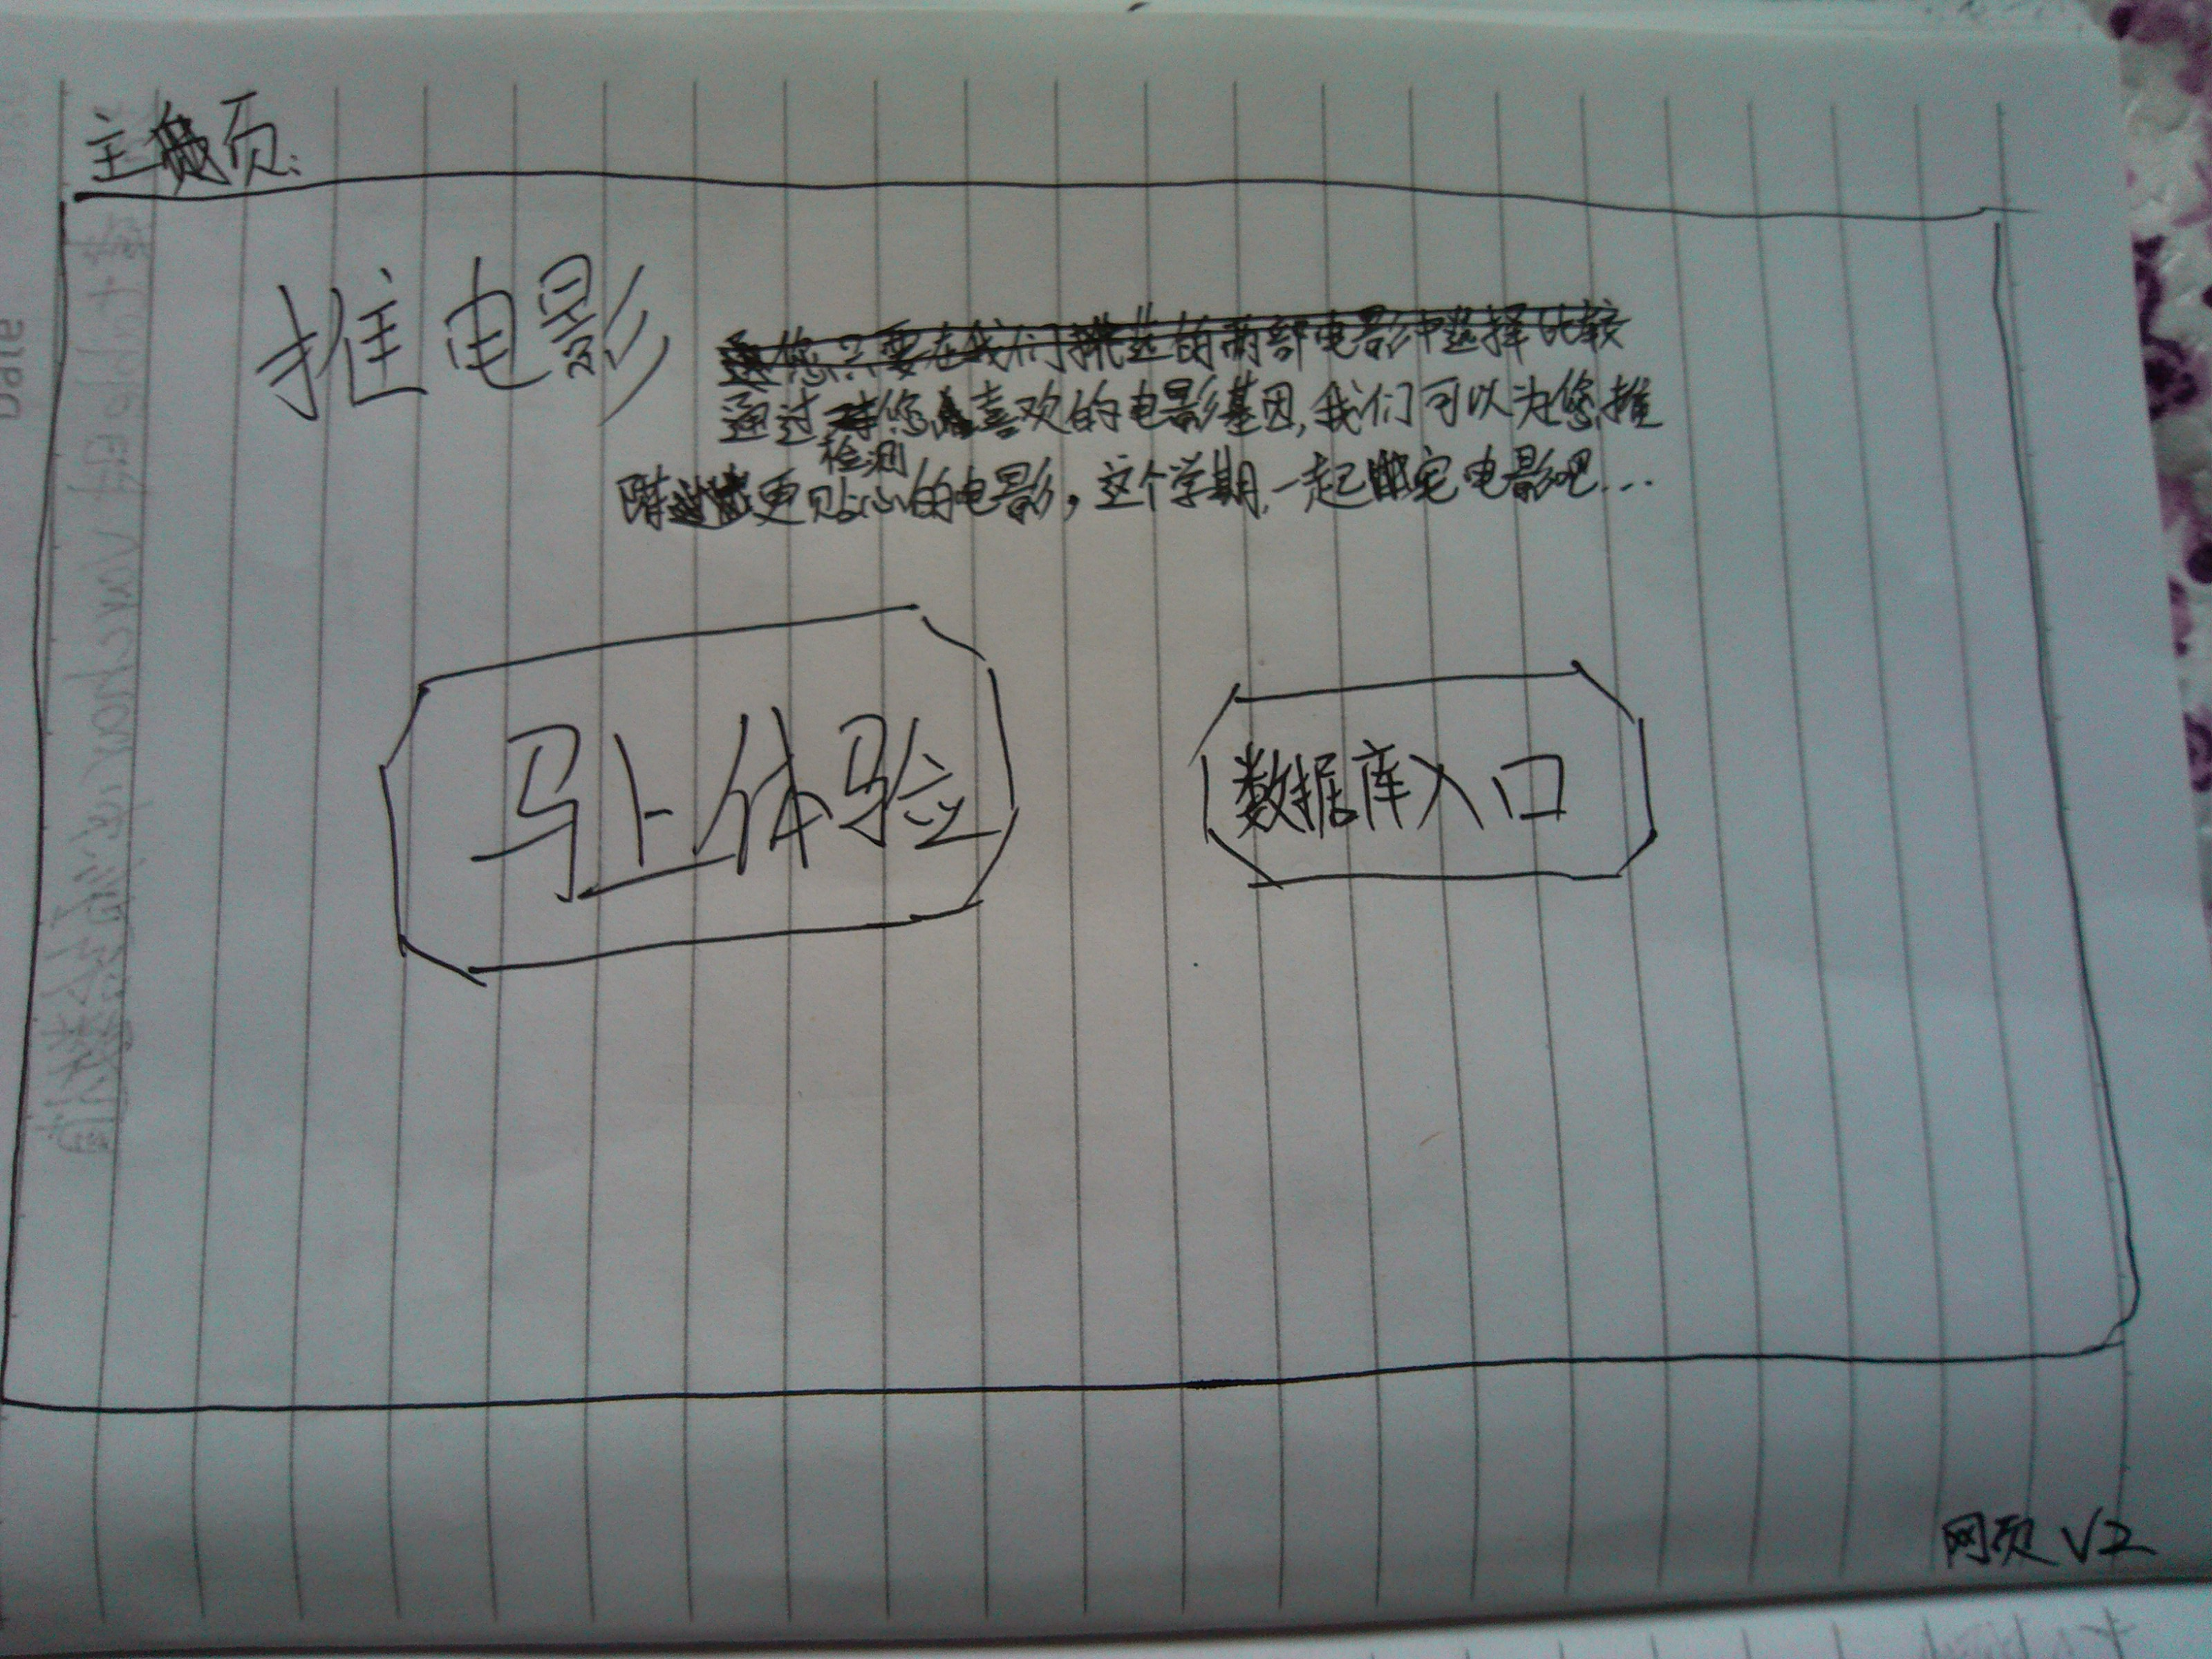 主页:
推电影
您只要在我们挑选的两部电影中选择比较
通过检测您喜欢的电影基因,我们可以为您推
更贴心的电影,这个学期,一起宅电影吧...
马上体验
数据库入口
网页 V2